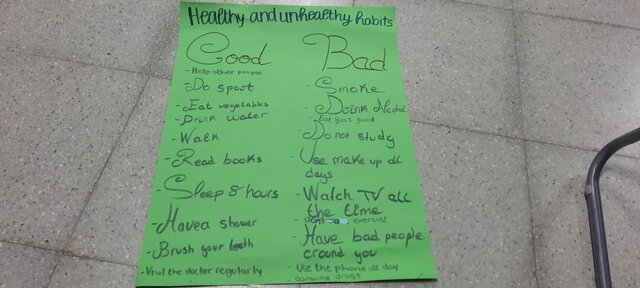 Healthy and unhealthy habits
Good
- Help other people
- Do sport
- Eat vegetables
- Drink water
- Walk
- Read books
- Sleep 8 hours
- Have a shower
- Brush your teeth
- Visit the doctor regularly
Bad
- Smoke
- Drink Alcohol
- Do not study
- Use make up all
days
- Watch TV all
the time
exercise
- Have bad people
around you
- Use the phone all day
consume drugs